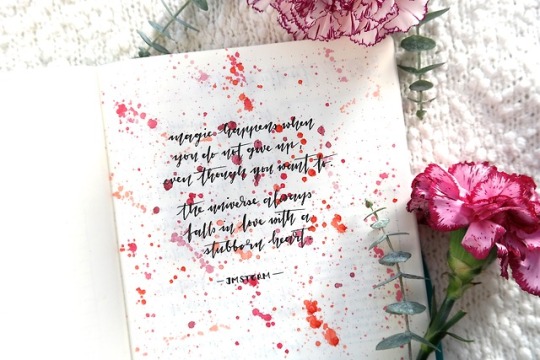 magic happens when
you do not give up
even though you want to.
the universe always
falls in love with a
stubborn heart.
- JMSTORM -